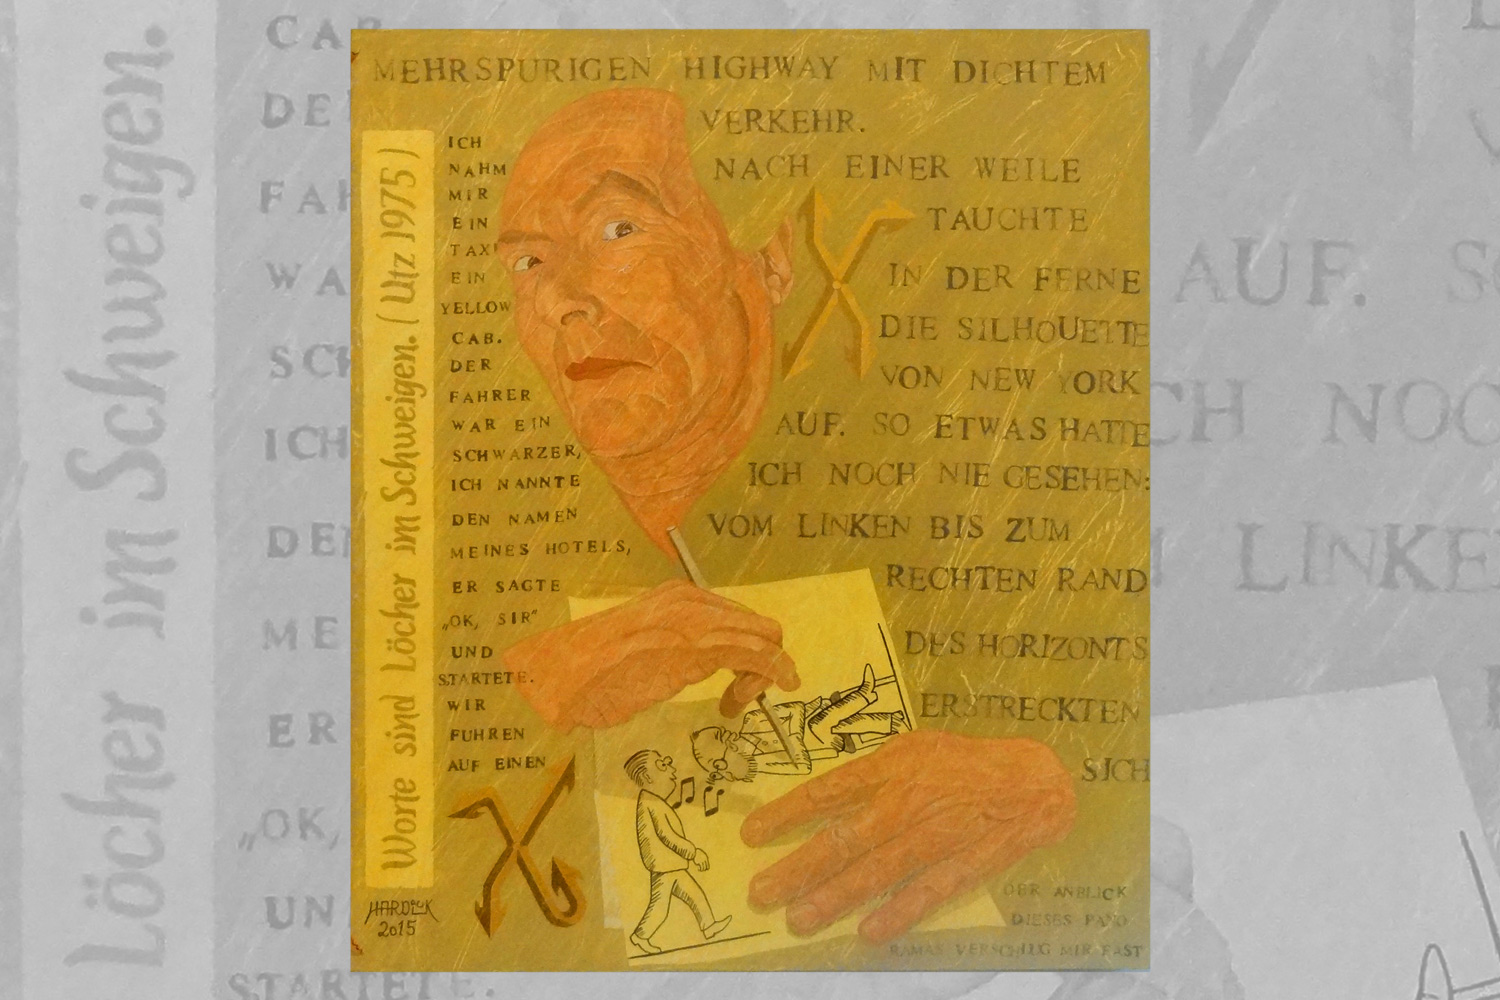 Worte sind Löcher im Schweigen. (Utz 1975)
ICH
NAHM
MIR
EIN
TAXI
EIN
YELLOW
CAB.
DER
FAHRER
WAR EIN
SCHWARZER,
ICH NANNTE
DEN NAMEN
MEINES HOTELS,
ER SAGTE
„OK, SIR"
UND
STARTETE.
WIR
FUHREN
AUF EINEN
MEHRSPURIGEN HIGHWAY MIT DICHTEM
VERKEHR.
NACH EINER WEILE
TAUCHTE
IN DER FERNE
DIE SILHOUETTE
VON NEW YORK
AUF. SO ETWAS HATTE
ICH NOCH NIE GESEHEN:
VOM LINKEN BIS ZUM
RECHTEN RAND
DES HORIZONTS
ERSTRECKTEN
SICH
DER ANBLICK
DIESES PANO
RAMAS VERSCHLUG MIR FAST
HARDICK
2015